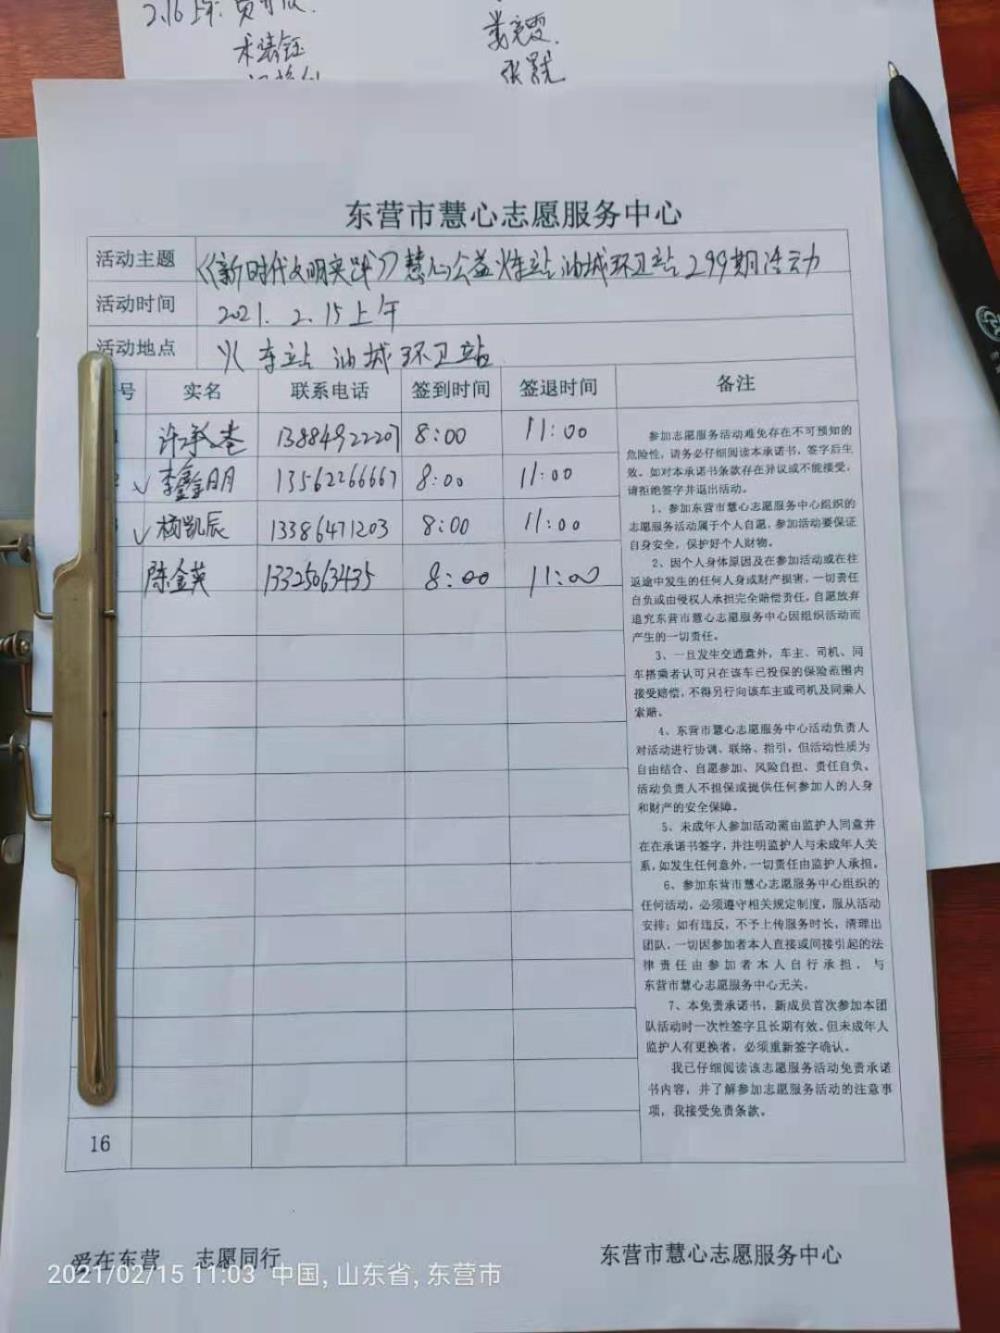 2.16上午:
张
东营市慧心志愿服务中心
活动主题 《新时代文明实践》慧心公益火车站油城环卫站299期活动
活动时间 2021. 2. 15上午
活动地点 火车站 油城环卫站
号 实名 联系电话 签到时间 签退时间 备注
许承 13884922207 8:00 11:00
李鑫明 13562266667 8:00 11:00
杨凯辰 13386471203 8:00 11:00
陈金英 13325063435 8:00 11:00
参加志愿服务活动难免存在不可预知的
危险性，请务必仔细阅读本承诺书，签字后生
效。如对本承诺书条款存在异议或不能接受，
请拒绝签字并退出活动。
1、参加东营市慧心志愿服务中心组织的
志愿服务活动属于个人自愿，参加活动要保证
自身安全，保护好个人财物。
2、因个人身体原因及在参加活动或在往
返途中发生的任何人身或财产损害，一切责任
自负或由侵权人承担完全赔偿责任，自愿放弃
追究东营市慧心志愿服务中心因组织活动而
产生的一切责任。
3、一旦发生交通意外，车主、司机、同
车搭乘者认可只在该车已投保的保险范围内
接受赔偿，不得另行向该车主或司机及同乘人
索赔。
4、东营市慧心志愿服务中心活动负责人
对活动进行协调、联络、指引，但活动性质为
自由结合、自愿参加、风险自担、责任自负。
活动负责人不担保或提供任何参加人的人身
和财产的安全保障。
5、未成年人参加活动需由监护人同意并
在在承诺书签字，并注明监护人与未成年人关
系，如发生任何意外，一切责任由监护人承担。
6、参加东营市慧心志愿服务中心组织的
任何活动，必须遵守相关规定制度，服从活动
安排；如有违反，不予上传服务时长，清理出
团队，一切因参加者本人直接或间接引起的法
律责任由参加者本人自行承担，与
东营市慧心志愿服务中心无关。
7、本免责承诺书，新成员首次参加本团
队活动时一次性签字且长期有效。但未成年人
监护人有更换者，必须重新签字确认。
我已仔细阅读该志愿服务活动免责承诺
书内容，并了解参加志愿服务活动的注意事
项，我接受免责条款。
16
爱在东营 志愿同行 东营市慧心志愿服务中心
2021/02/15 11:03 中国, 山东省, 东营市